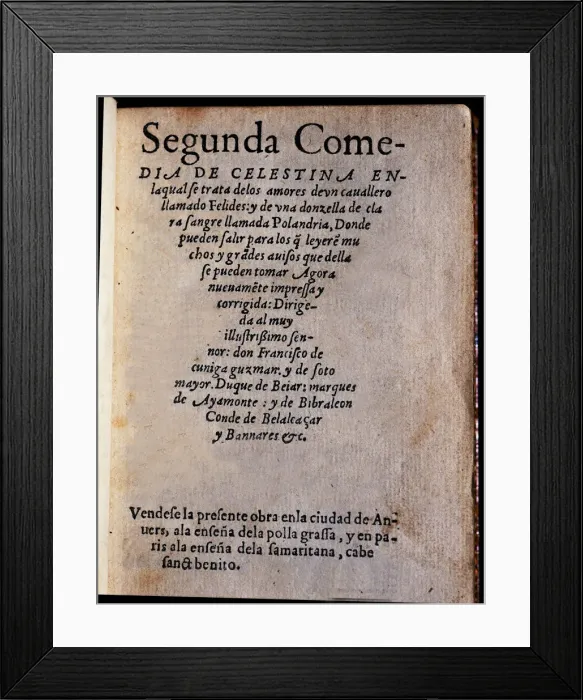 Segunda Come-
DIA DE CELESTINA EN-
laqual ſe trata delos amores devn cauallero
llamado Felides: y de vna donzella de cla
ra ſangre llamada Polandria, Donde
pueden ſalir para los q̃ leyerẽ mu
chos y grãdes auiſos que della
ſe pueden tomar Agora
nueuamẽte impreſſa y
corrigida: Dirige-
da al muy
illuſtrißimo ſen-
nor: don Franciſco de
cuniga guzman. y de ſoto
mayor. Duque de Beiar: marques
de Ayamonte : y de Bibraleon
Conde de Belalcaçar
y Bannares &c.
Vendeſe la preſente obra enla ciudad de An-
uers, ala enſeña dela polla graſſa, y en pa-
ris ala enſeña dela ſamaritana, cabe
ſanct benito.